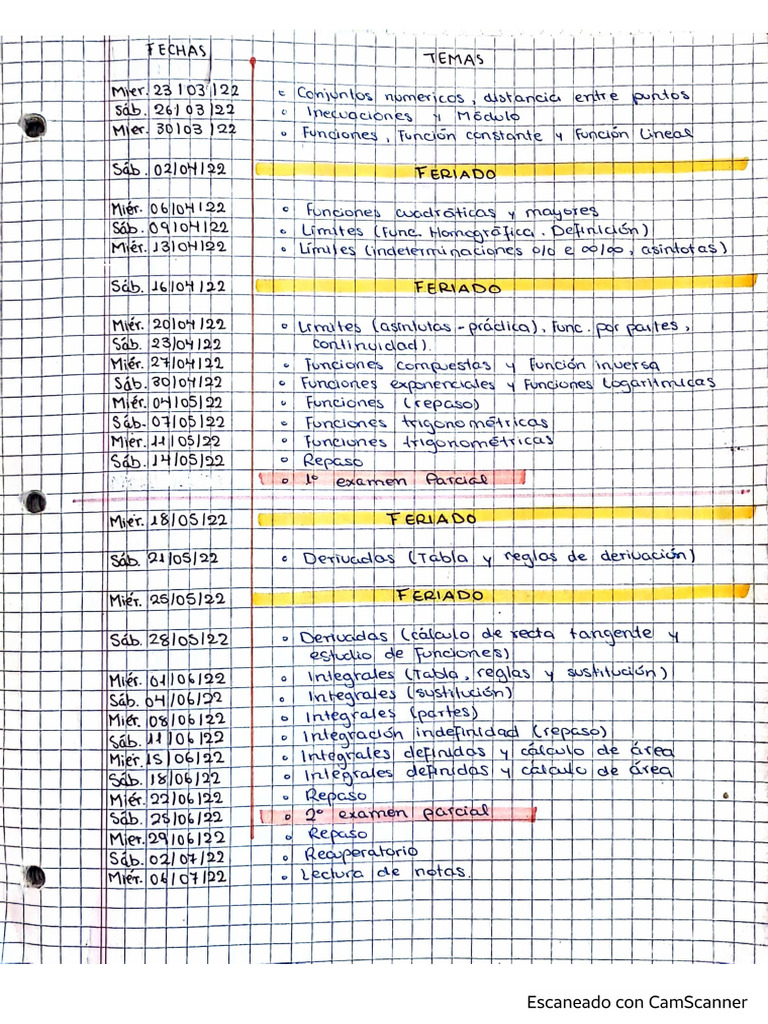 FECHAS TEMAS
Mier. 23/03/22 • Conjuntos numericos, distancia entre puntos
Sáb. 26/03/22 • Inecuaciones y Módulo
Mier. 30/03/22 • Funciones, Función constante y Función Lineal
Sáb. 02/04/22 FERIADO
Miér. 06/04/22 • Funciones cuadráticas y mayores
Sáb. 09/04/22 • Límites (Func. Homográfica. Definición)
Miér. 13/04/22 • Límites (indeterminaciones 0/0 e ∞/∞, asintotas)
Sáb. 16/04/22 FERIADO
Miér. 20/04/22 • Límites (asíntotas - práctica), Func. por partes,
Sáb. 23/04/22 continuidad).
Miér. 27/04/22 • Funciones compuestas y Función inversa
Sáb. 30/04/22 • Funciones exponenciales y Funciones Logarítmicas
Miér. 04/05/22 • Funciones (repaso)
Sáb. 07/05/22 • Funciones trigonométricas
Miér. 11/05/22 • Funciones trigonométricas
Sáb. 14/05/22 • Repaso
• 1° examen Parcial
Miér. 18/05/22 FERIADO
Sáb. 21/05/22 • Derivadas (Tabla y reglas de derivación)
Miér. 25/05/22 FERIADO
Sáb. 28/05/22 • Derivadas (cálculo de recta tangente y
estudio de Funciones)
Miér. 01/06/22 • Integrales (Tabla, reglas y sustitución)
Sáb. 04/06/22 • Integrales (sustitución)
Miér. 08/06/22 • Integrales (partes)
Sáb. 11/06/22 • Integración indefinidad (repaso)
Miér. 15/06/22 • Integrales definidas y cálculo de área
Sáb. 18/06/22 • Integrales definidas y cálculo de área
Miér. 22/06/22 • Repaso
Sáb. 25/06/22 • 2° examen parcial
Mier. 29/06/22 • Repaso
Sáb. 02/07/22 • Recuperatorio
Miér. 06/07/22 • Lectura de notas.
Escaneado con CamScanner